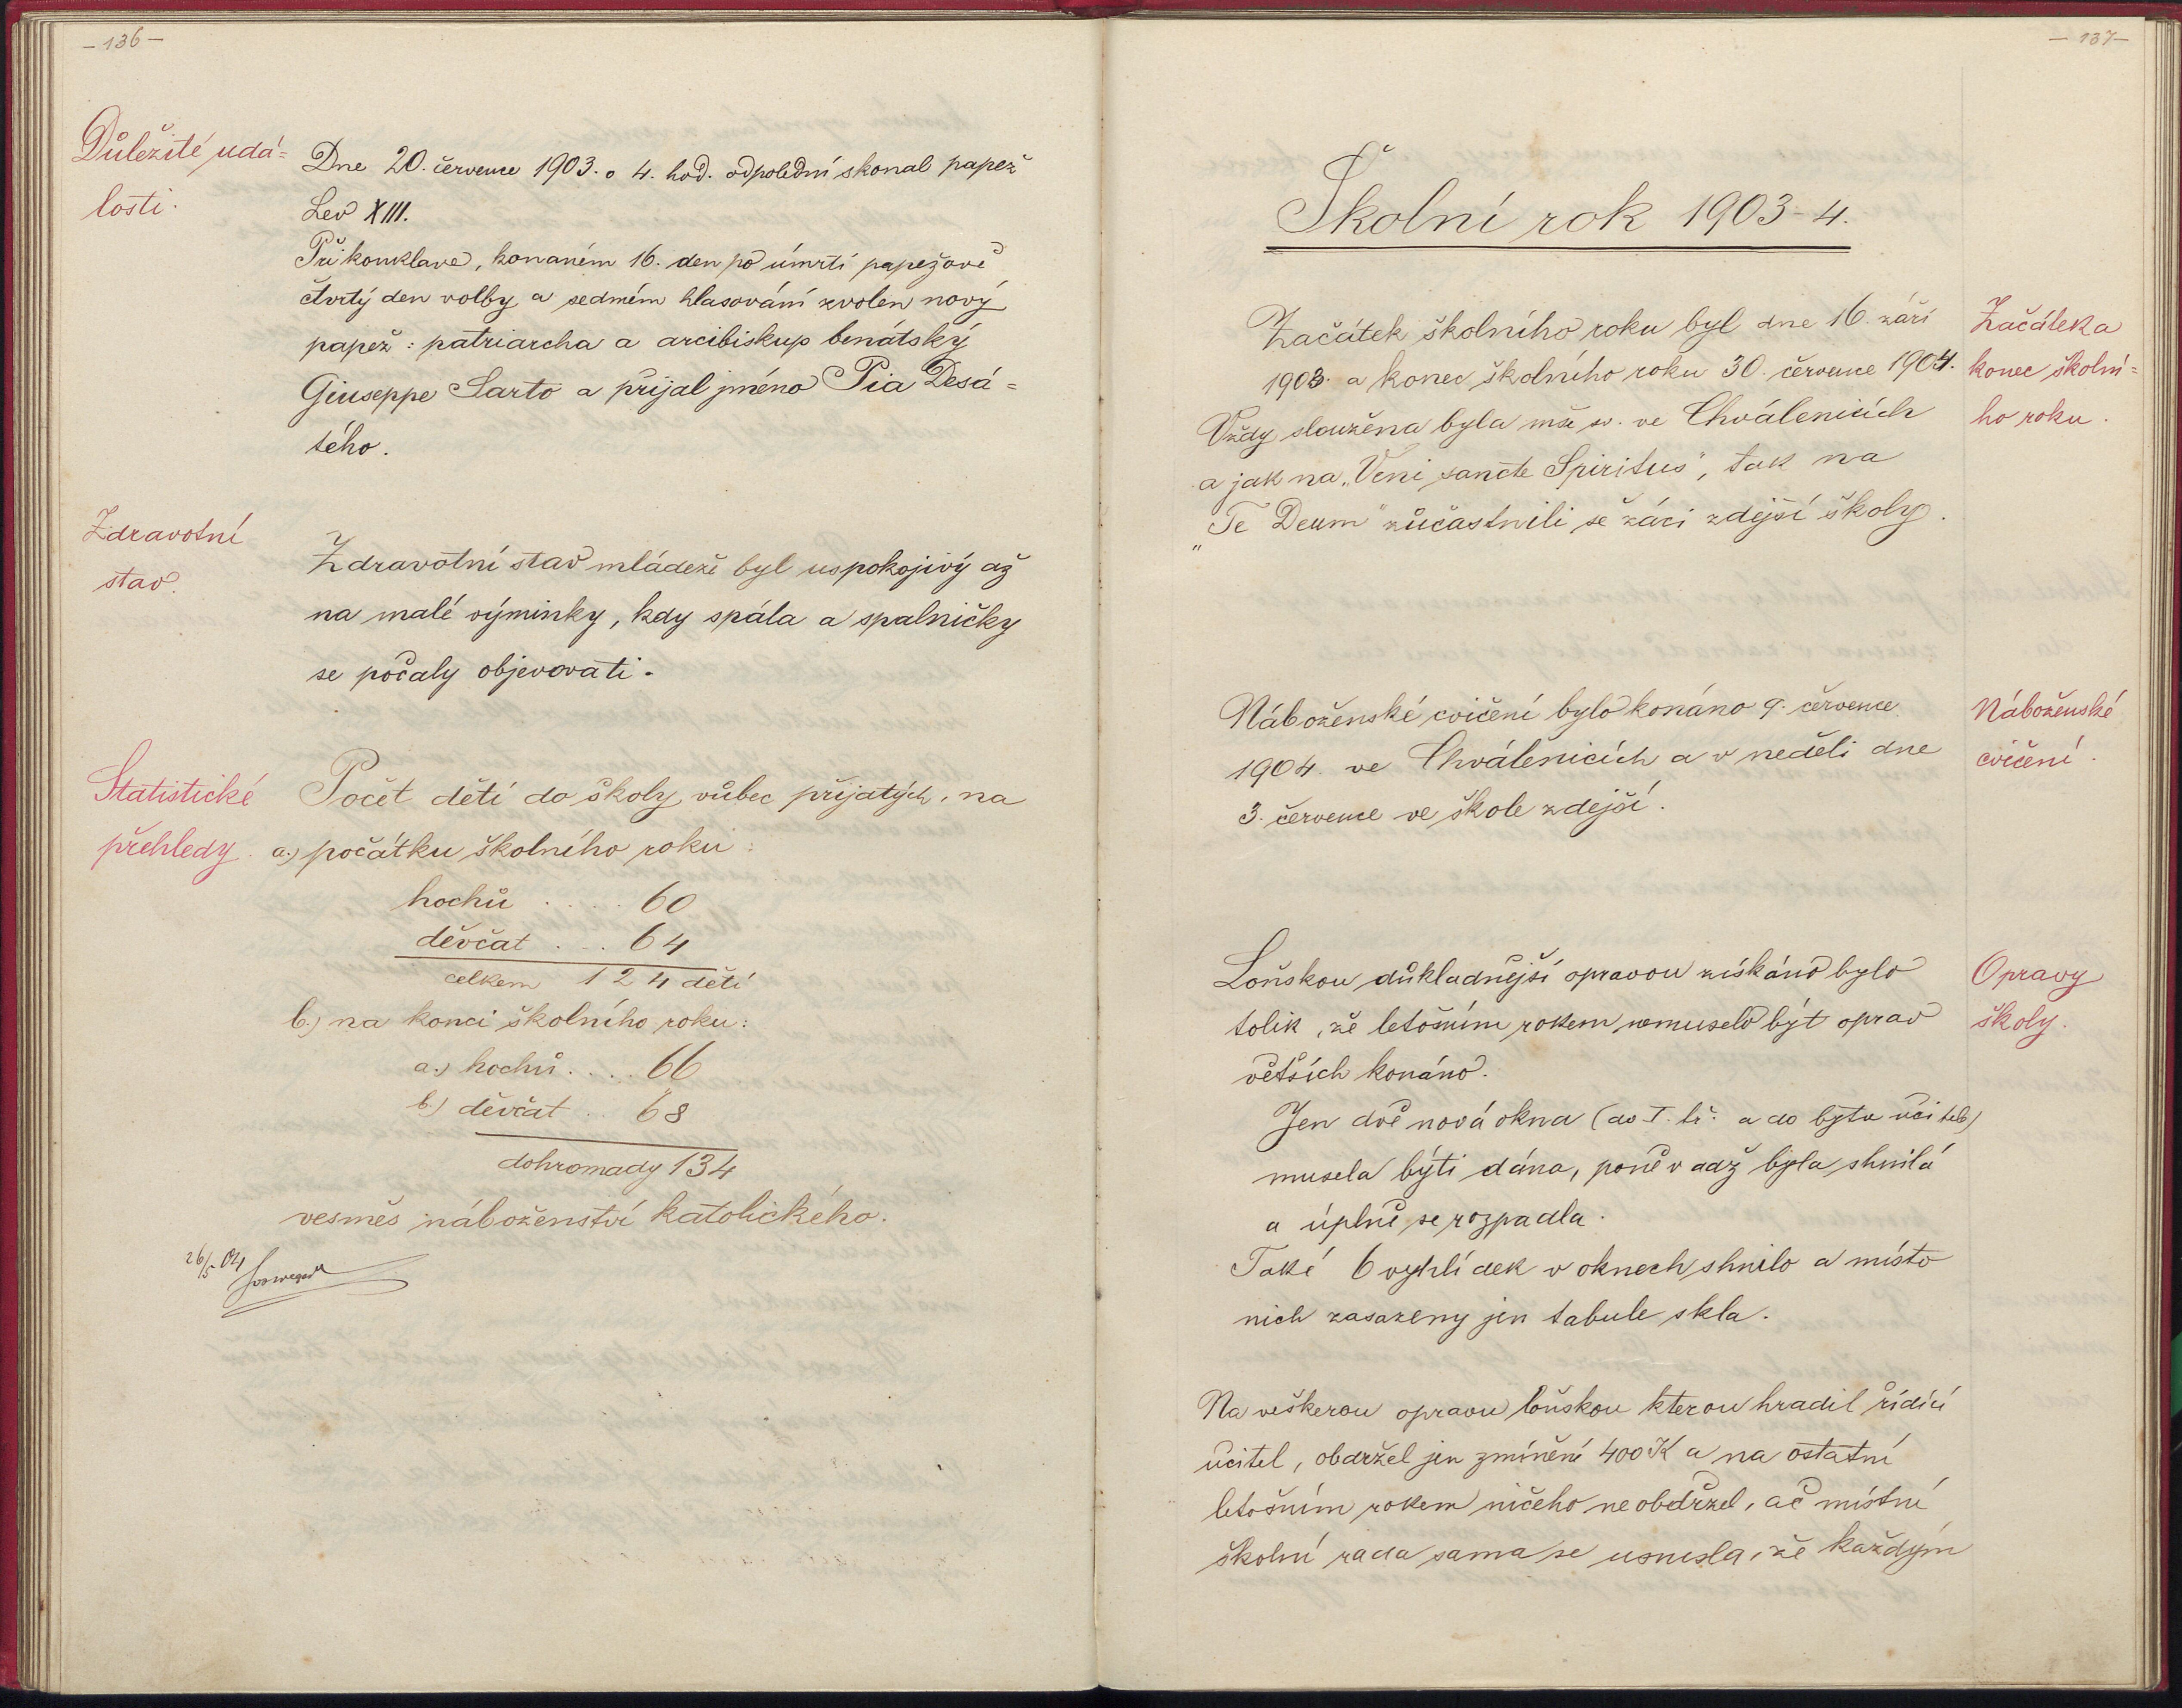 -136-
Důležité udá=
losti.
Dne 20. července 1903. o 4. hod. odpolední skonal papež
Lev XIII.
Při konklave, konaném 16. den po úmrtí papežově
čtvrtý den volby a sedmém hlasování zvolen nový
papež: patriarcha a arcibiskup benátský
Giuseppe Sarto a přijal jméno Pia Desá=
tého.
Zdravotní
stav.
Zdravotní stav mládeže byl uspokojivý až
na malé výminky, kdy spála a spalničky
se počaly objevovati.
Statistické
přehledy.
Počet dětí do školy vůbec přijatých, na
a.) počátku školního roku:
hochů . . . . 60
děvčat . . . 64
celkem 124 dětí
b.) na konci školního roku:
a.) hochů . . . . 66
b.) děvčat . . 68
dohromady 134
vesměs náboženství katolického.
26/5 04
-137-
Školní rok 1903-4.
Začátek školního roku byl dne 16. září
1903. a konec školního roku 30. července 1904.
Vždy sloužena byla mše sv. ve Chválenicích
a jak na „Veni sancte Spiritus", tak na
„Te Deum" zůčastnili se žáci zdejší školy.
Začátek a
konec školní=
ho roku.
Náboženské cvičení bylo konáno 9. července
1904. ve Chválenicích a v neděli dne
3. července ve škole zdejší.
Náboženské
cvičení.
Loňskou důkladnější opravou získáno bylo
tolik, že letošním rokem nemuselo být oprav
větších konáno.
Opravy
školy.
Jen dvě nová okna (do I. tř. a do bytu učitele)
musela býti dána, poněvadž byla shnilá
a úplně se rozpadla.
Také 6 vyhlídek v oknech shnilo a místo
nich zasazeny jen tabule skla.
Na veškerou opravu loňskou kterou hradil řídící
učitel, obdržel jen zmíněné 400 K a na ostatní
letošním rokem ničeho neobdržel, ač místní
školní rada sama se usnesla, že každým